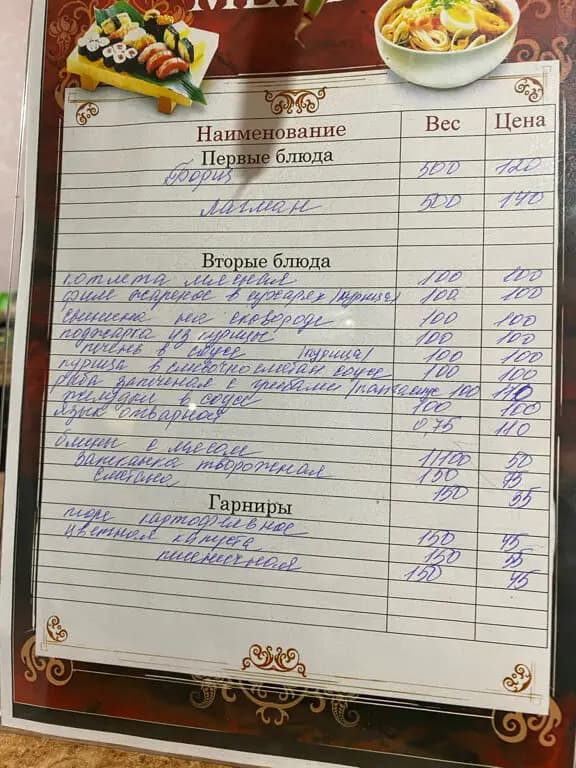 МЕН
Наименование Вес Цена
Первые блюда
Борщ 500 120
Лагман 500 140
Вторые блюда
котлета мясная 100 100
филе жареное в сухарях (курица) 100 100
свинина на сковороде 100 100
поджарка из курицы 100 100
печень в соусе (курица) 100 100
курица в сливочносметан соусе 100 100
рыба запеченая с грибами (пангасиус 100 110
желудки в соусе 100 100
язык отварной 0,75 110
блины с мясом 1/100 50
запеканка творожная 150 45
сметана 150 55
Гарниры
пюре картофельное 150 45
цветная капуста 150 55
пшеничная 150 45